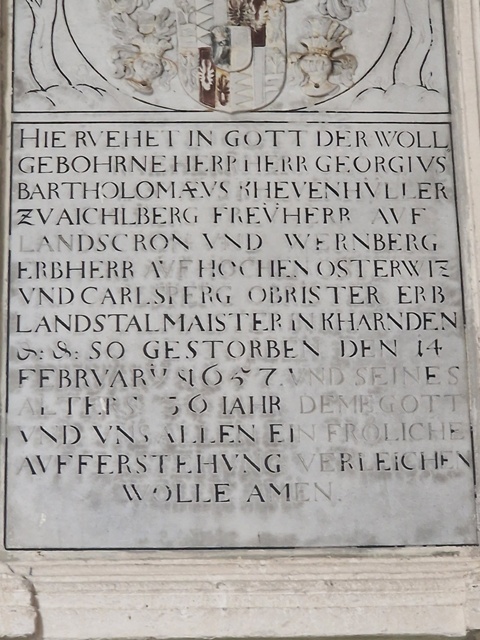 HIE RVEHET IN GOTT DER WOLL
GEBOHRNE HERR HERR GEORGIVS
BARTHOLOMÆVS KHEVENHVLLER
ZV AICHLBERG FREŸHERR AVF
LANDSCRON VND WERNBERG
ERBHERR AVF HOCHEN OSTERWIZ
VND CARLSPERG OBRISTER ERB
LANDSTALMAISTER IN KHARNDEN
&: &: SO GESTORBEN DEN 14
FEBRVARŸ 1657. VND SEINES
ALTERS 56 IAHR DEME GOTT
VND VNS ALLEN EIN FRÖLICHE
AVFFERSTEHVNG VERLEICHEN
WOLLE AMEN.